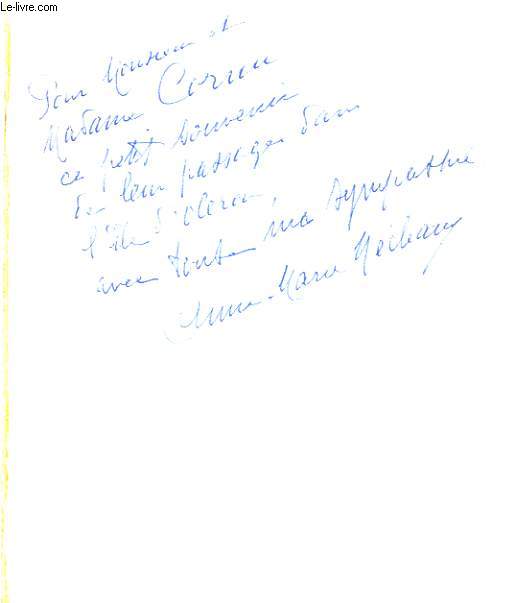 Le-livre.com
Pour Monsieur et
Madame
ce petit souvenir
de leur passage dans
l'Ile d'oleron,
avec toute ma sympathie
Anne-Marie